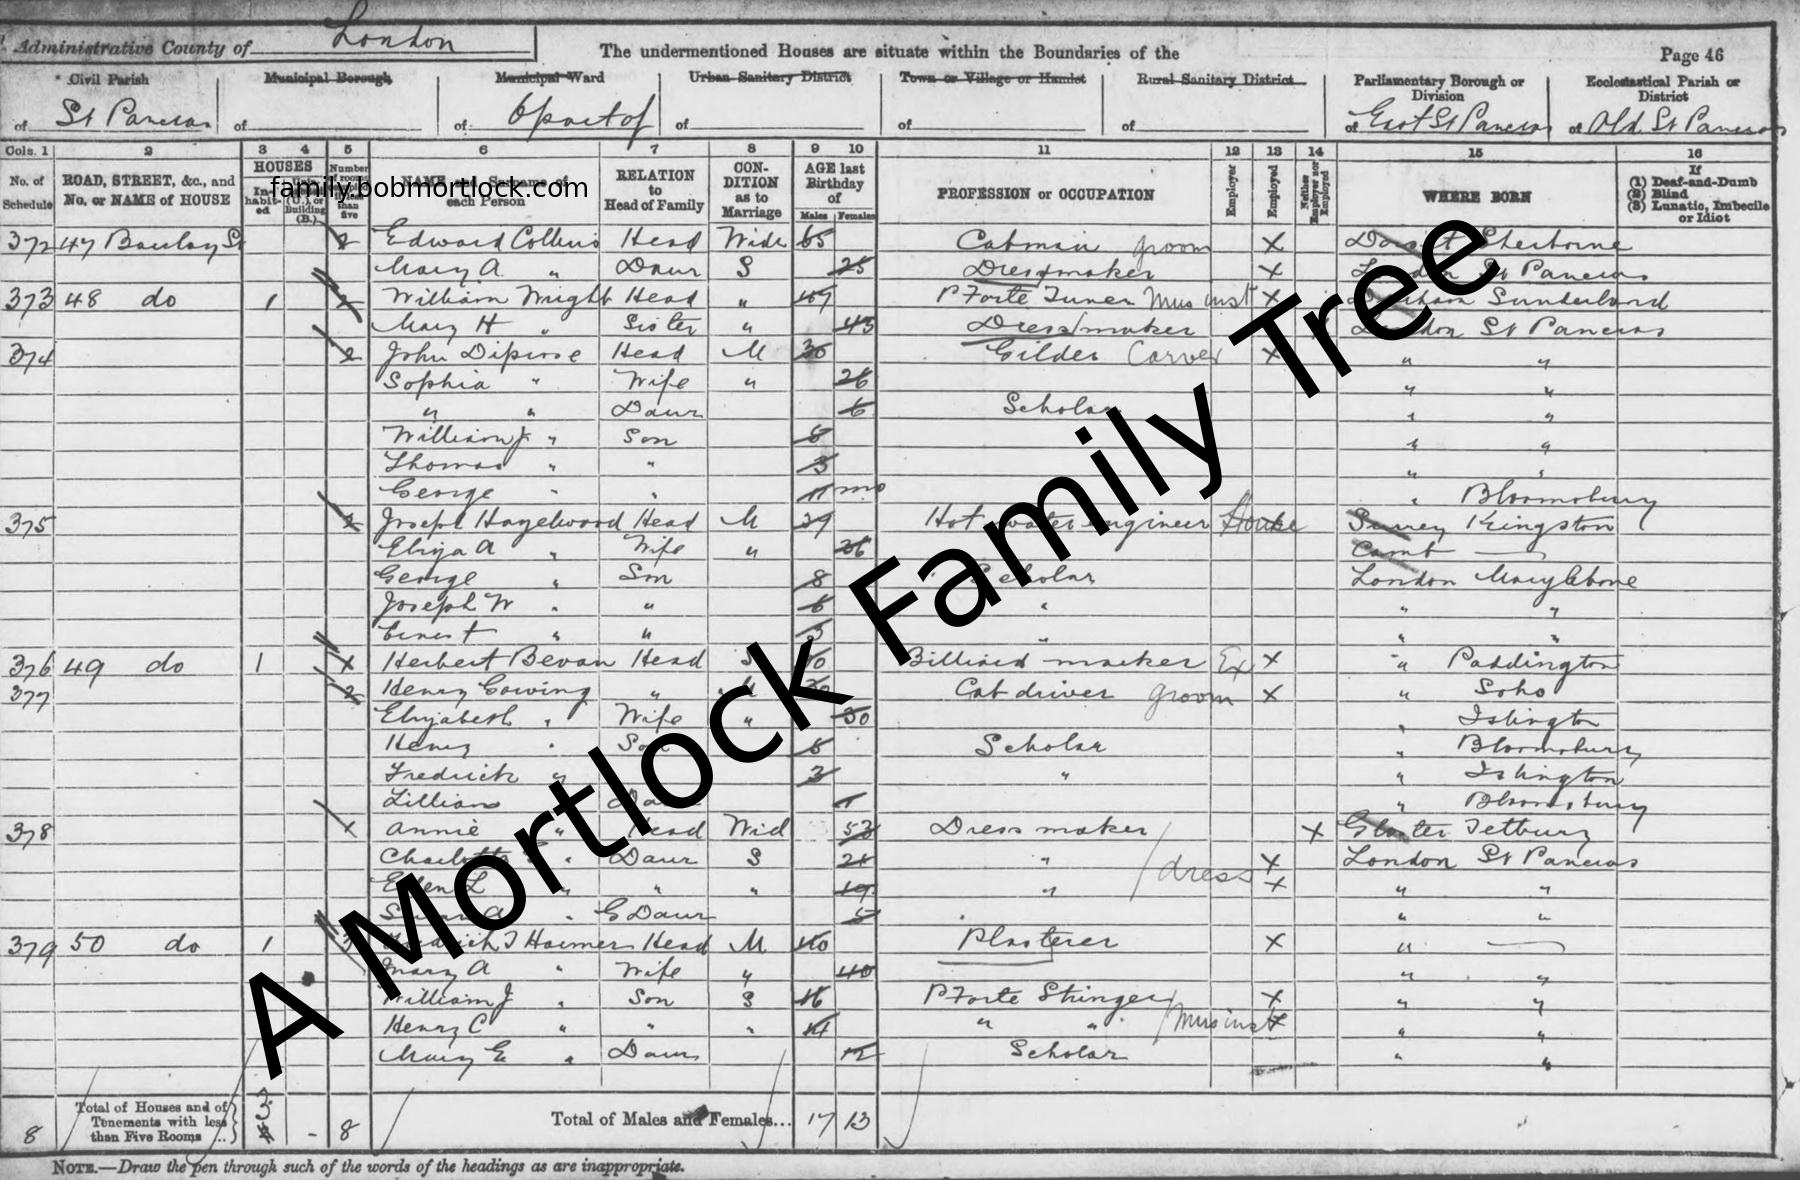 Administrative County of London
The undermentioned Houses are situate within the Boundaries of the
Page 46
Civil Parish Municipal Borough Municipal Ward Urban Sanitary District Town or Village or Hamlet Rural Sanitary District Parliamentary Borough or Division Ecclesiastical Parish or District
of St Pancras of of 6 part of of of of of East St Pancras of Old St Pancras
Cols. 1 2 3 4 5 6 7 8 9 10 11 12 13 14 15 16
No. of Schedule ROAD, STREET, &c., and No. or NAME of HOUSE HOUSES In-habit-ed (U.) or Building (B.) Number than five NAME and Surname of each Person RELATION to Head of Family CON-DITION as to Marriage AGE last Birthday of Males Females PROFESSION or OCCUPATION Employer Employed Neither Employer nor Employed WHERE BORN If (1) Deaf-and-Dumb (2) Blind (3) Lunatic, Imbecile or Idiot
family.bobmortlock.com
372 47 2 Edward Collins Head Wid 65 Cabman groom X Dorset Sherborne
Mary A " Daur S 25 Dressmaker X London St Pancras
373 48 do 1 William Wright Head " 49 P Forte Tuner Mus inst X Durham Sunderland
Mary H " Sister " 45 Dressmaker London St Pancras
374 2 John Diprose Head M 30 Gilder Carver X " "
Sophia " Wife " 26 " "
" " Daur 6 Scholar " "
William J " Son 5 " "
Thomas " " 3 " "
George " " 11 mo " Bloomsbury
375 2 Joseph Hazelwood Head M 39 Hot water engineer House Surrey Kingston
Eliza A " Wife " 36 Camb
George " Son 8 Scholar London Marylebone
Joseph W " " 6 " " "
Ernest " " 3 " " "
376 49 do 1 1 Herbert Bevan Head S Billiard marker Ex X " Paddington
377 2 Henry Cowing " M Cab driver groom X " Soho
Elizabeth " Wife " 30 " Islington
Henry " Son 5 Scholar " Bloomsbury
Fredrick " 3 " " Islington
Lillian 1 " Bloomsbury
378 1 Annie " Head Wid 53 Dress maker X Gloster Tetbury
Charlotte " Daur S 21 " X London St Pancras
Ellen L " " " 19 " dress X " "
" G Daur 5 " "
379 50 do 1 Fredrich J Harmer Head M 40 Plasterer X "
Mary A " Wife " 40 " "
William J " Son S 16 P Forte Stringer X " "
Henry C " " " 14 " " Mus inst X " "
Mary E " Daur 12 Scholar " "
8 Total of Houses and of Tenements with less than Five Rooms .. 3 - 8 Total of Males and Females... 17 13
NOTE.—Draw the pen through such of the words of the headings as are inappropriate.
A Mortlock Family Tree